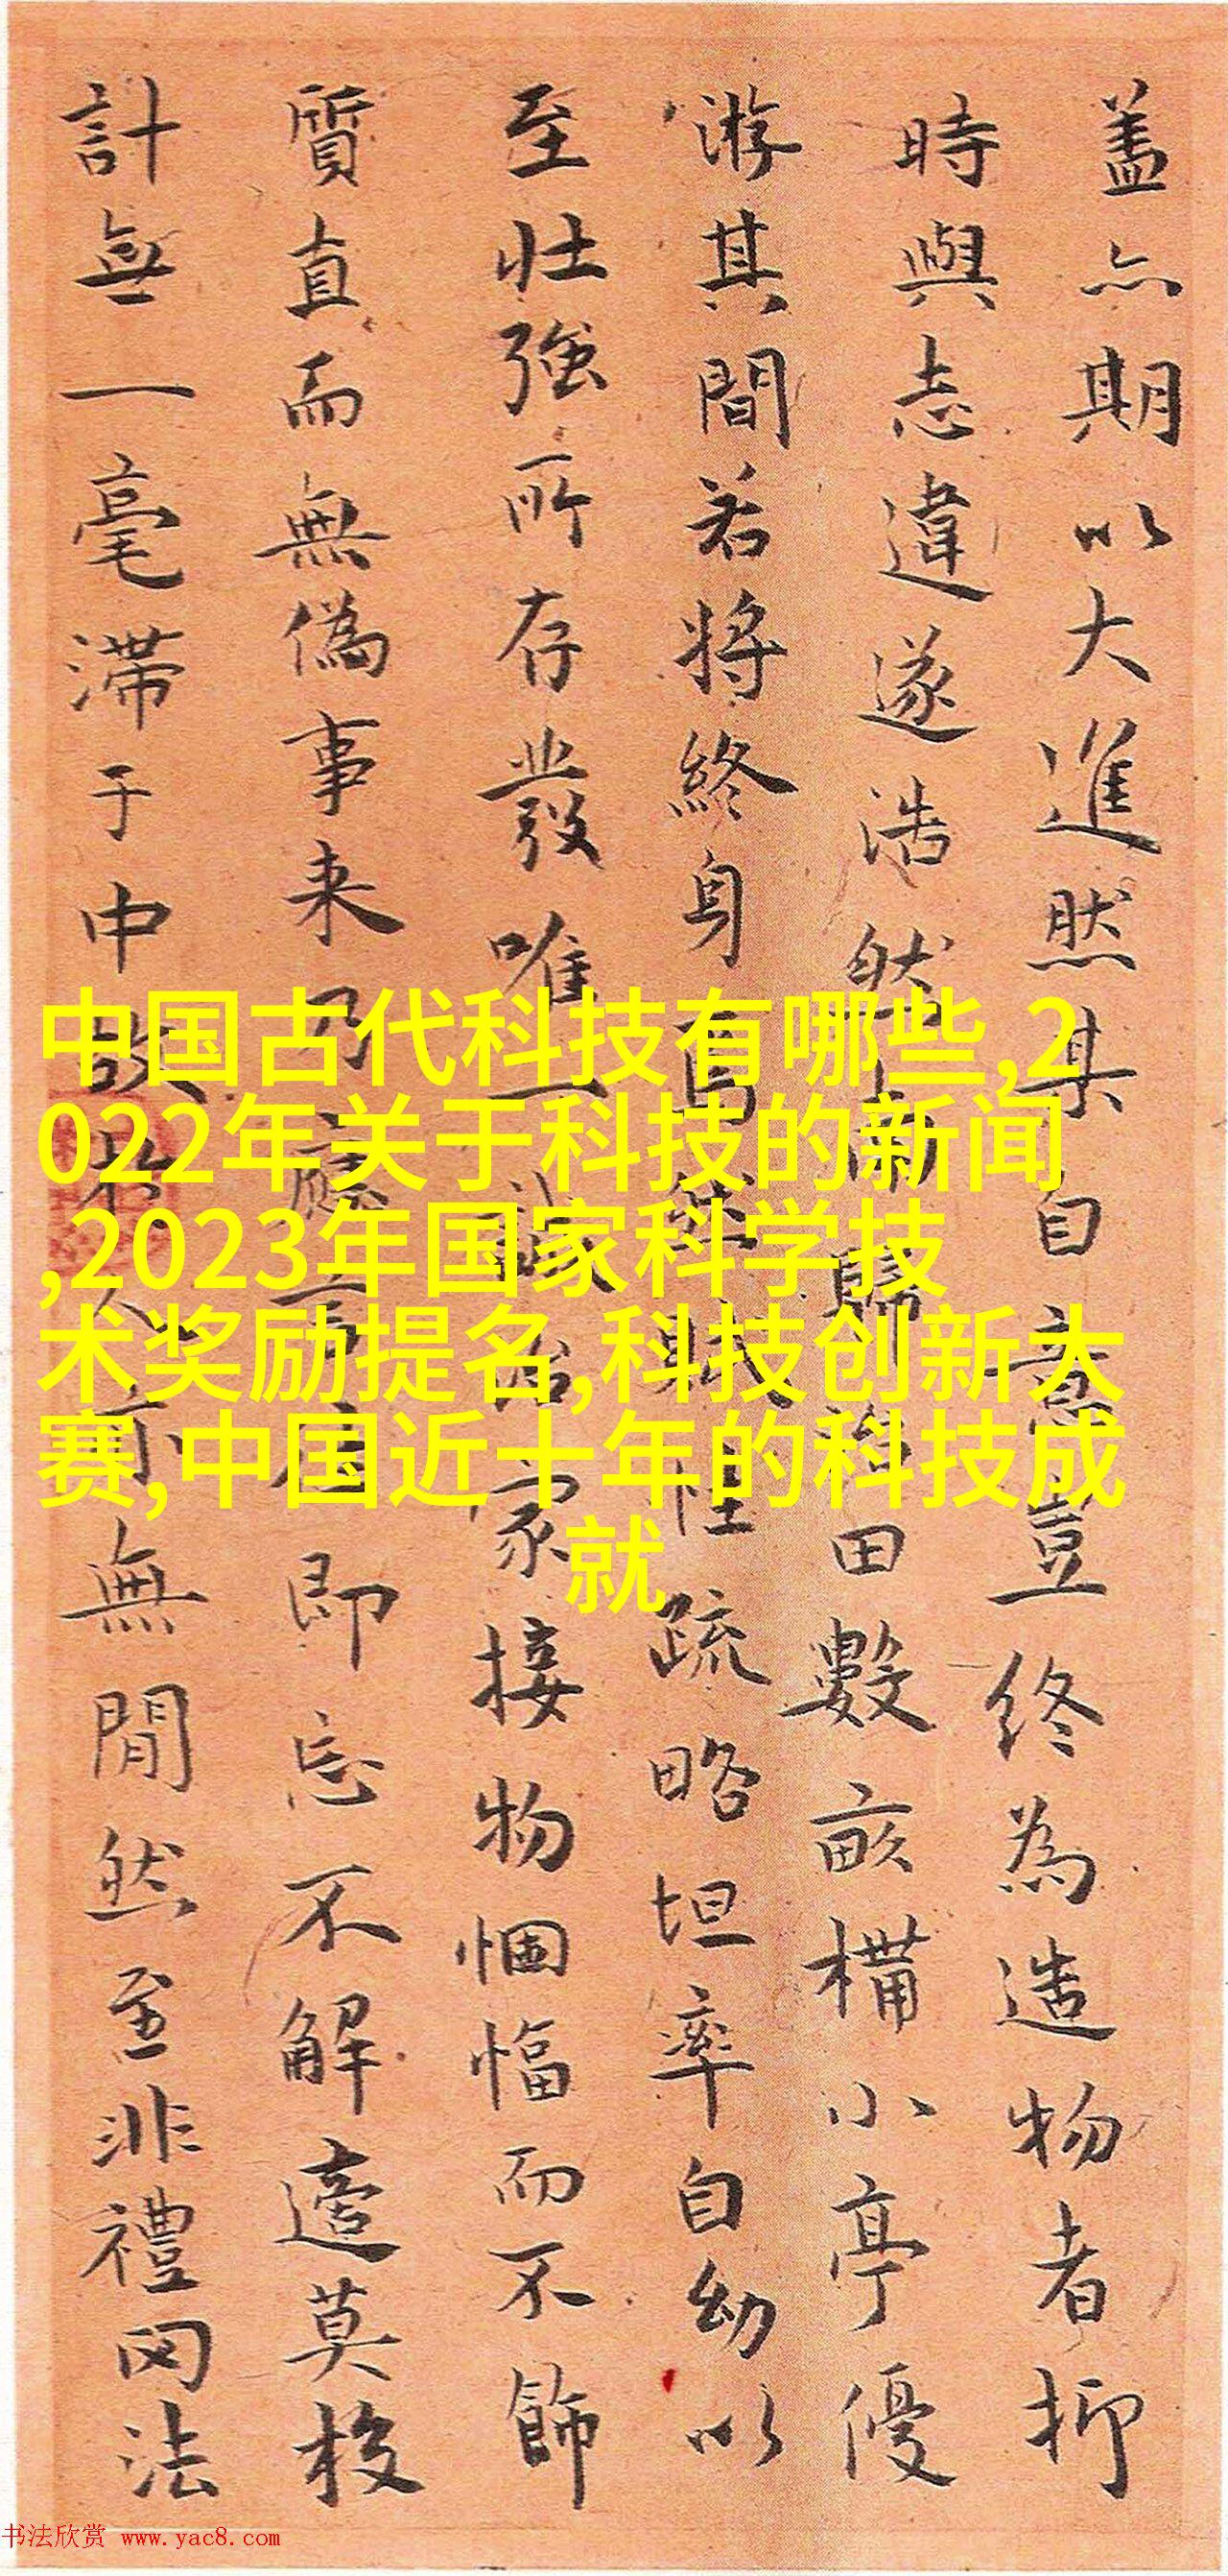 蓋亦期以大進然其自意豈终為造物者抑
時與志違遂浩然而歸治田數畝構小亭優
游其間若将終身焉然賦性疏略坦率自幼以
至壮強所存發唯一誠治家接物悃愊而不飾
質直而無偽事来乃應事應即忘不解適莫校
計無一毫滯于中故无無間然至非禮网法
中国古代科技有哪些,2
022年关于科技的新闻
,2023年国家科学技
术奖励提名,科技创新大
赛,中国近十年的科技成
就
书法欣赏 www.yac8.com